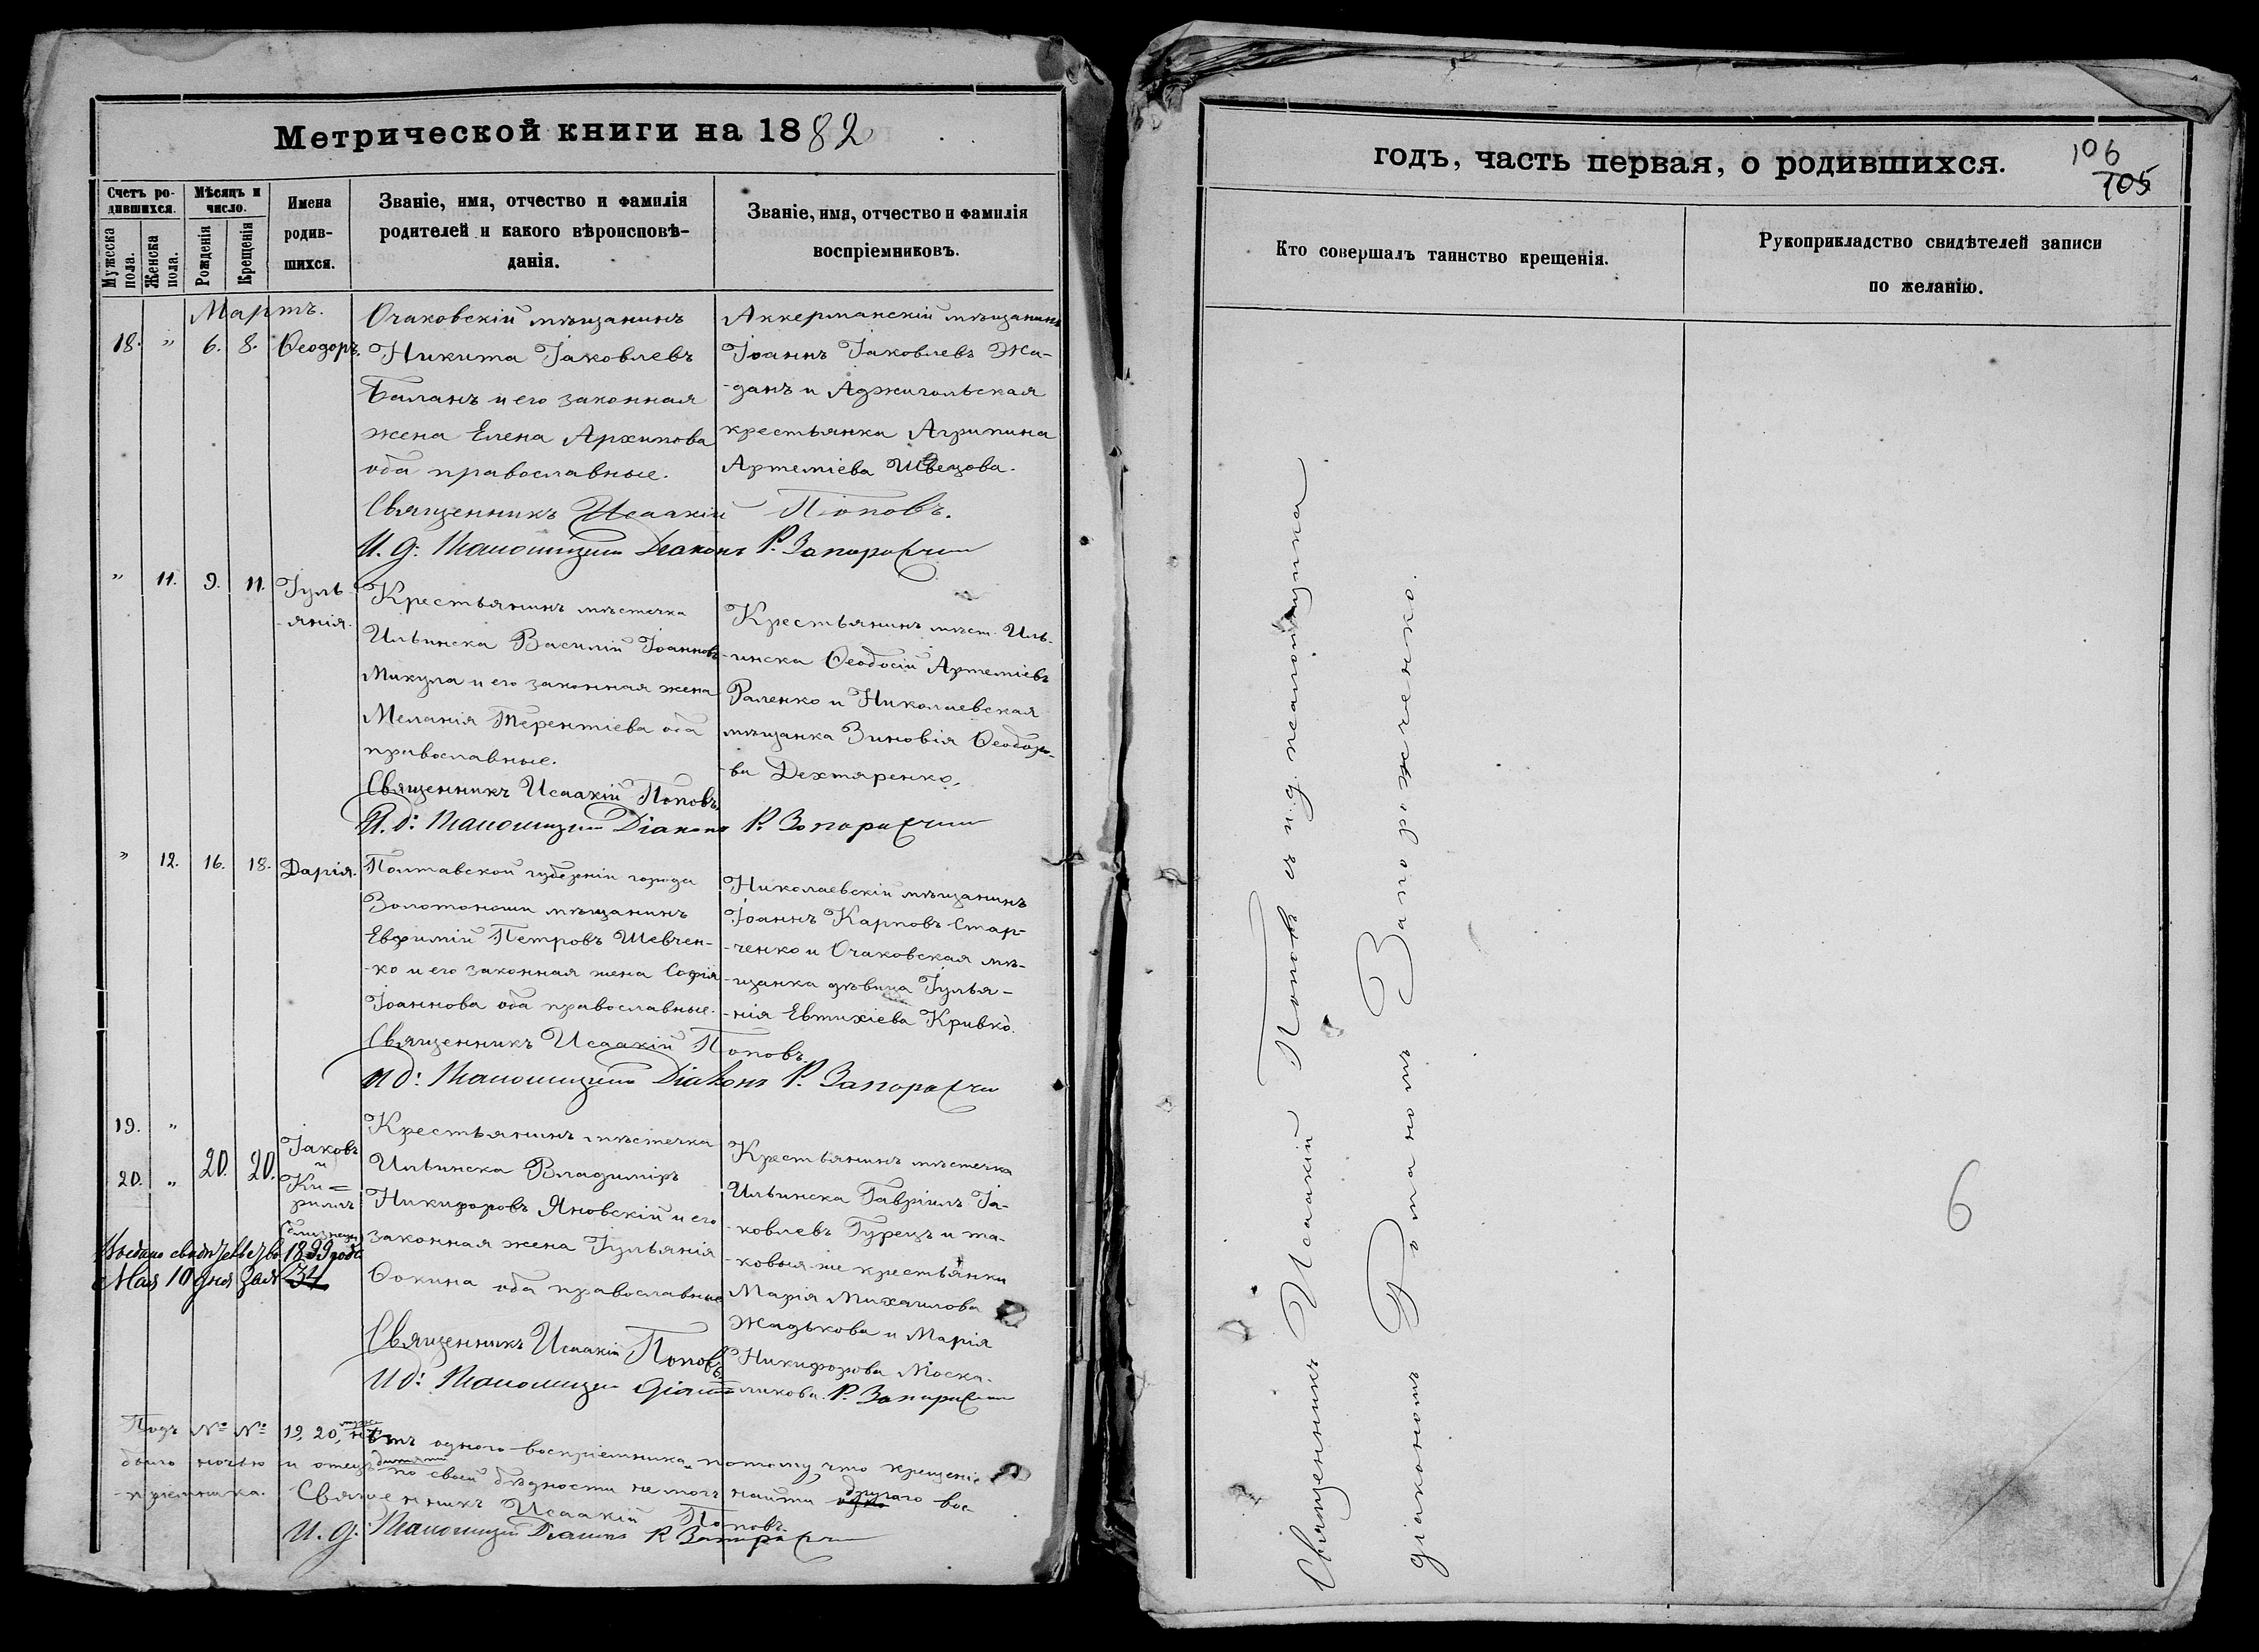 Метрической книги на 1882
Счетъ ро-
дившихся.
Мужеска
пола.
Женска
пола.
Мѣсяцъ и
число.
Рожденія
Крещенія
Имена
родив-
шихся.
Званіе, имя, отчество и фамилія
родителей и какого вѣроисповѣ-
данія.
Званіе, имя, отчество и фамилія
воспріемниковъ.
Мартъ.
18. " 6. 8. Ѳеодоръ.
Очаковскій мѣщанинъ
Никита Іаковлевъ
Баланъ и его законная
жена Елена Архипова
оба православные.
Аккерманскій мѣщанинъ
Іоаннъ Іаковлевъ Жа-
-данъ и Аджигольская
крестьянка Агрипина
Артеміева Швецова.
Священникъ Исаакій Поповъ.
И. д. Псаломщика Діаконъ Р. Запорожченко
" 11. 9. 11. Іуль-
-янія.
Крестьянинъ мѣстечка
Ильинска Василій Іоанновъ
Микула и его законная жена
Меланія Терентіева оба
православные.
Крестьянинъ мѣст. Иль-
-инска Ѳеодосій Артеміевъ
Раленко и Николаевская
мѣщанка Зиновія Ѳеодоро-
-ва Дехтяренко.
Священникъ Исаакій Поповъ.
И. д. Псаломщика Діаконъ Р. Запорожченко
" 12. 16. 18. Дарія.
Полтавской губерніи города
Золотоноши мѣщанинъ
Евфимій Петровъ Шевчен-
-ко и его законная жена Софія
Іоаннова оба православные.
Николаевскій мѣщанинъ
Іоаннъ Карповъ Стар-
-ченко и Очаковская мѣ-
-щанка дѣвица Іулья-
-нія Евтихіева Кривко.
Священникъ Исаакій Поповъ.
И д. Псаломщика Діаконъ Р. Запорожченко
19. "
20. " 20. 20.
Іаковъ
и
Ки=
риллъ
близнецы
Крестьянинъ мѣстечка
Ильинска Владиміръ
Никифоровъ Яновскій и его
законная жена Іульянія
Ѳокина оба православные
Крестьянинъ мѣстечка
Ильинска Гавріилъ Іа-
-ковлевъ Гурецъ и та-
-ковыя-же крестьянки
Марія Михаилова
Жадькова и Марія
Никифорова Моска-
-ликова.
Выдано свидѣтельство 1899 года
Мая 10 дня за № 31
Священникъ Исаакій Поповъ
И д. Псаломщика Діаконъ Р. Запорожченко
Подъ №№ 19, 20, нѣтъ одного воспріемника, потому что крещеніе
было ночью и отецъ дитяти по своей бѣдности не могъ найти другаго вос-
-пріемника. Священникъ Исаакій Поповъ.
И. д. Псаломщика Діаконъ Р Запорожченко
годъ, часть первая, о родившихся.
106
105
Кто совершалъ таинство крещенія.
Рукоприкладство свидѣтелей записи
по желанію.
Священникъ Исаакій Поповъ съ и.д. псаломщика
діакономъ Романомъ Запорожченко.
6